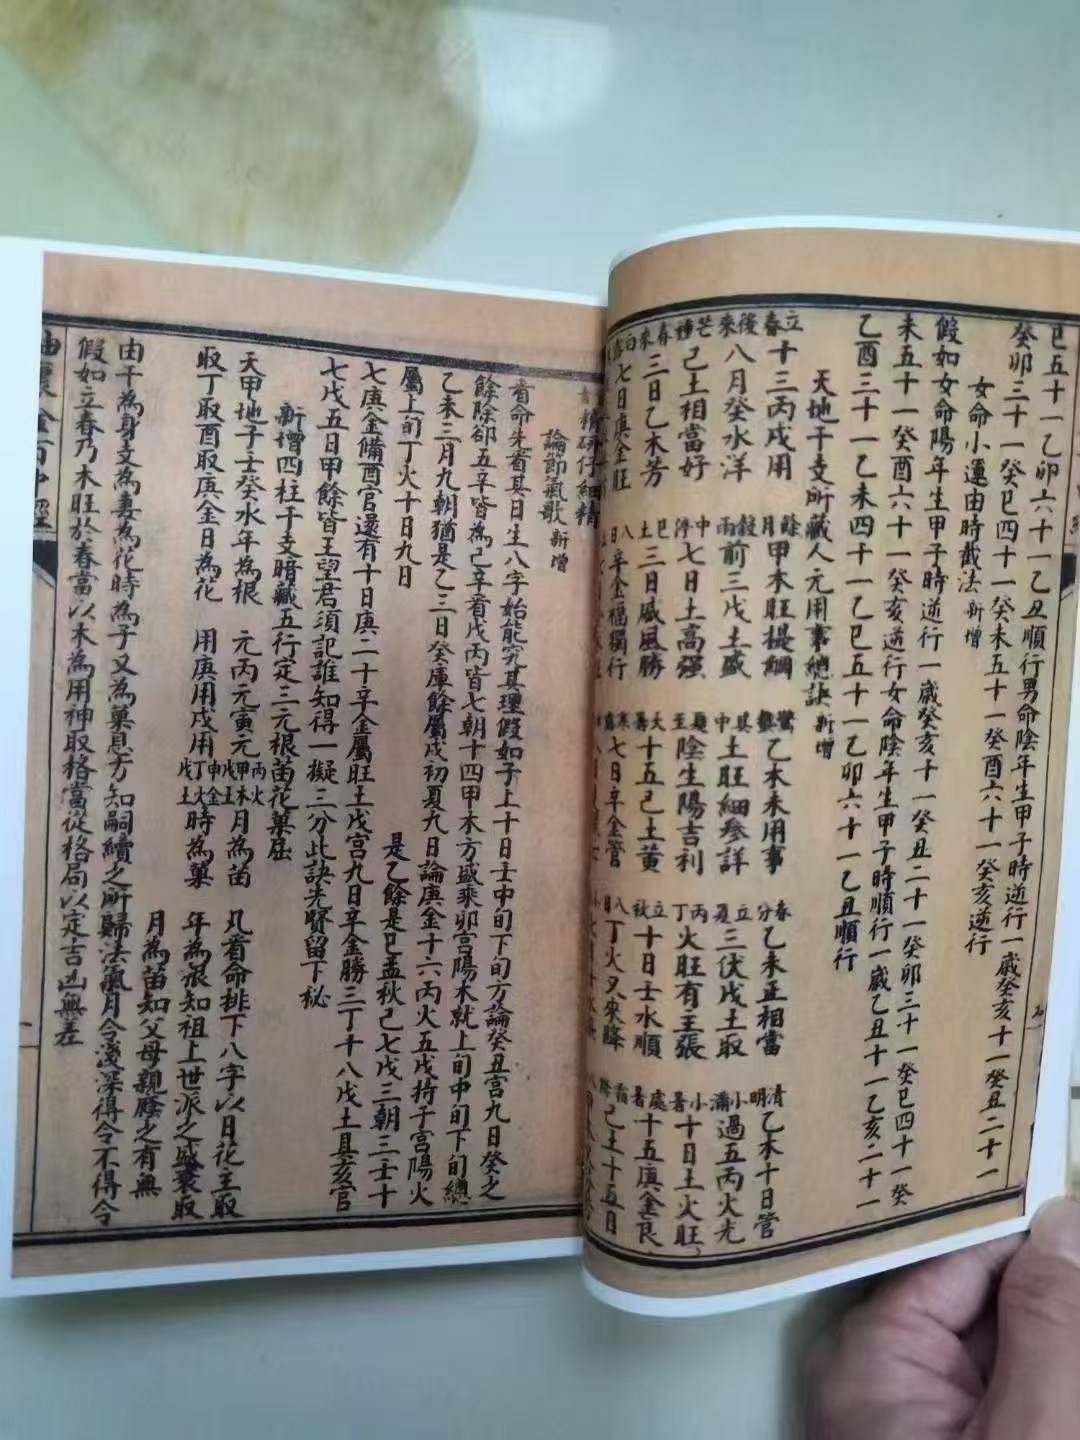 巳五十一乙卯六十一乙丑順行男命陰年生甲子時逆行一歲癸亥十一癸丑二十一
癸卯三十一癸巳四十一癸未五十一癸酉六十一癸亥逆行
女命小運由時截法新增
假如女命陽年生甲子時逆行一歲癸亥十一癸丑二十一癸卯三十一癸巳四十一癸
未五十一癸酉六十一癸亥逆行女命陰年生甲子時順行一歲乙丑十一乙亥二十一
乙酉三十一乙未四十一乙巳五十一乙卯六十一乙丑順行
天地干支所藏人元用事總訣新增
立春十三丙戊用 餘月甲木旺提綱 驚蟄乙木未用事 春分乙未正相當 清明乙木十日管
後來八月癸水洋 穀雨前三戊土盛 其中土旺細參詳 立夏三伏戊土取 小滿過五丙火光
芒種己土相當好 中停七日土高强 夏至陰生陽吉利 丙丁火旺有主張 小暑十日土火旺
春來三日乙木芳 己土三日威風勝 大暑十五己土黃 立秋十日壬水順 處暑十五庚金良
白露七日庚金旺 八日辛金福獨行 寒露七日辛金管 八日丁火又來降 霜降己土十五日
精研仔細精
論節氣歌新增
看命先看其日生八字始能究其理假如子上十日壬中旬下旬方論癸丑宮九日癸之
餘除卻五辛皆為己辛看戊丙皆七朝十四甲木方盛乘卯宮陽木就上旬中旬下旬總
乙未三月九朝猶是乙三日癸庫餘屬戊初夏九日論庚金十六丙火五戊持子宮陽火
屬上旬丁火十日九日 是乙餘是巳孟秋己七戊三朝三壬十
七庚金備酉官還有十日庚二十辛金屬旺土戊宮九日辛金勝三丁十八戊土具亥官
七戊五日甲餘皆王望君須記誰知得一擬三分此訣先賢留下秘
新增四柱干支暗藏五行定三元根苗花菓屈
天甲地子壬癸水年為根 元丙元寅元丙火甲木戊土月為苗 凡看命排下八字以日花主取
取丁取酉取庚金日為花 用庚用戌用申金丁火戊土時為菓 年為根知祖上世派之盛衰取
月為苗知父母親蔭之有無
由干為身支為妻為花時為子又為菓息方知嗣續之所歸法氣月令淺深得令不得令
假如立春乃木旺於春當以木為用神取格當從格局以定吉凶無差